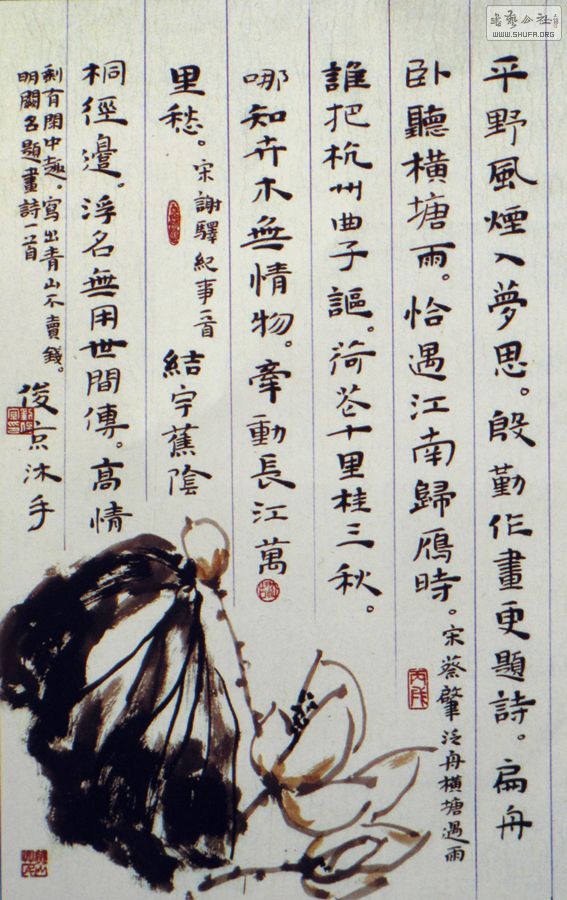 平野風煙入夢思。殷勤作畫更題詩。扁舟
卧聽橫塘雨。恰遇江南歸鴈時。宋蔡肇泛舟橫塘遇雨
丙戌
誰把杭州曲子謳。荷花十里桂三秋。
哪知卉木無情物。牽動長江萬
里愁。宋謝驛紀事一首 結宇蕉陰
桐徑邊。浮名無用世間傳。高情
剩有閑中趣。寫出青山不賣錢。
明闕名題畫詩一首
俊京沐手
書藝公社
WWW.SHUFA.ORG